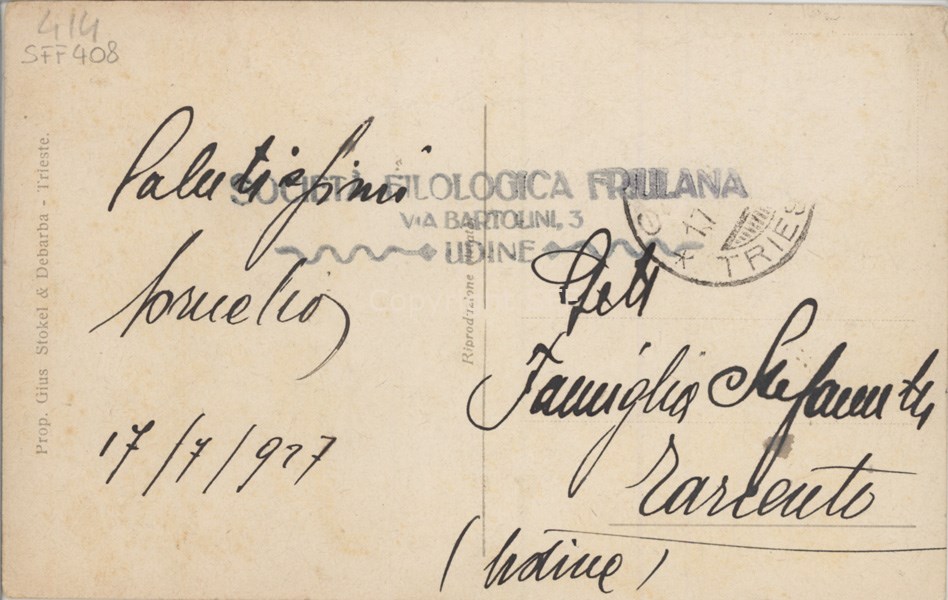 414
SFF 408
Prop. Gius Stokel & Debarba - Trieste.
Salutissimi
Cornelio
17/7/927
SOCIETÀ FILOLOGICA FRIULANA
VIA BARTOLINI, 3
UDINE
Riproduzione vietata
17
TRIES
Gett
Famiglia Stefanutti
Tarcento
(Udine)